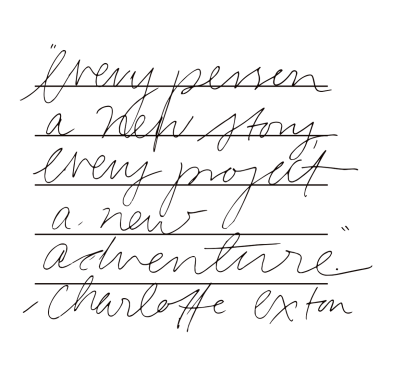 "every person
a new story,
every project
a new
adventure."
- Charlotte exton